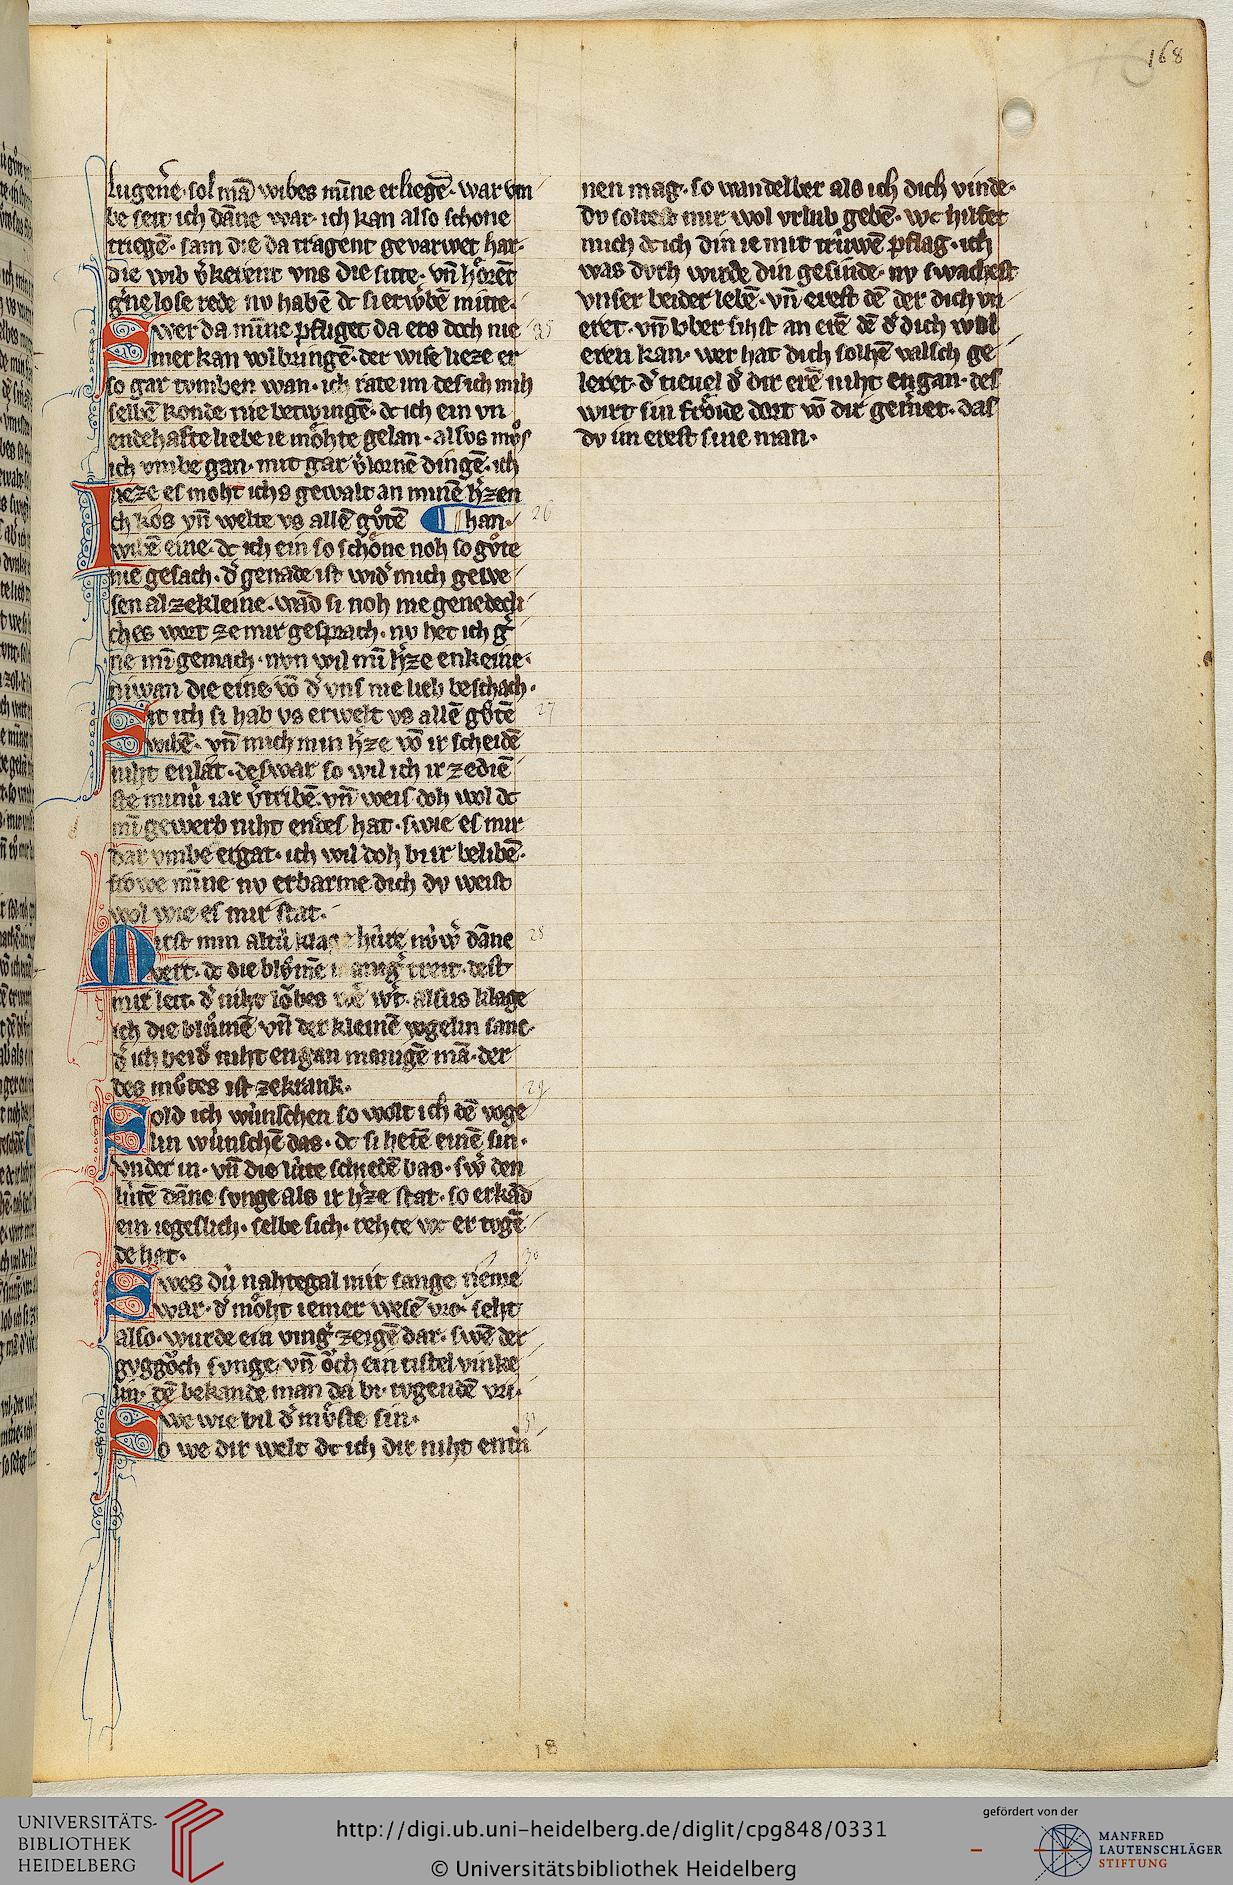 168
lugene᷒· sol mā wibes mīne erliegē· war vm
be seit ich dāne war· ich kan also schone
triegē· sam die da tragent gevarwet har·
die wib v᷒kerent vns die sitte· vn̄ hőrēt
g᷒ne lose rede nv habē dc si erw᷒bē mitte·
Swer da mīne pfliget da ets doch nie
mer kan volbringē· der wise lieze er
so gar tvmben wan· ich rate im des ich mih
selbē konde nie betwingē· dc ich ein vn
endehafte liebe ie mőhte gelan· alsvs mvͦs
ich vmbe gan· mit gar v᷒lornē dingē· ich
lieze es moht ichs gewalt an minē h᷒zen
Ich kos vn̄ welte vs allē gvͦtē han·
wibē eine· dc ich ein so schőne noh so gvͦte
nie gesach· d᷒ genade ist wid᷒ mich gewe
sen al zekleine· wād si noh nie genedecli
ches wort ze mir gesprach· nv het ich g᷒
ne mī gemach· nvn wil mī h᷒ze enkeine·
niwan die eine vō d᷒ vns nie lieb beschach·
Sit ich si hab vs erwelt vs allē gvͦtē
wibē· vn̄ mich min h᷒ze vō ir scheidē
niht enlat· deswar so wil ich ir zediē
ste minv̓ iar v᷒tribē· vn̄ weis doh wol dc
mī gewerb niht endes hat· swie es mir
dar vmbe ergat· ich wil doh bi ir belibē·
frowe mīne nv erbarme dich dv weist
wol wie es mir stat·
Mirst min altv̓ klage hv̓te nv̓w᷒ dāne
vert· dc die blvͦmē manig᷒ treit· dest
mir leit· d᷒ niht lőbes wert· alsus klage
ich die blvͦmē vn̄ der kleinē vogelin sanc·
d᷒ ich beid᷒ niht engan manigē mā· der
des mvͦtes ist zekrank·
Sold ich wv̓nschen so wolt ich dē voge
lin wv̓nschē das· dc si hetē einē sin·
vnder in· vn̄ die lv̓te schiedē bas· sw᷒ den
lv̓tē dāne svnge als ir h᷒ze stat· so erkād
ein iegeslich· selbe sich· rehte wc er tvgē
de hat·
Swes dv̓ nahtegal mit sange neme
war· d᷒ mőht iemer wesē vro· seht
also· wurde ein ving᷒ zeigē dar· swē der
gvggőch svnge· vn̄ ōch ein tistel vinke
lin· dē bekande man da bi· tvgendē vri·
we wie vil d᷒ mvͦste sin·
So we dir welt dc ich dir niht entri
nen mag· so wandelber als ich dich vinde·
dv soltest mir wol vrlub gebē· wc hilfet
mich dc ich din ie mit triwē pflag· ich
was doch winde din gesinde· nv swachest
vnser beider lebē· vn̄ erest dē der dich vn
eret· vn̄ vber sihst an erē dē d᷒ dich wol
eren kan· wer hat dich solhē valsch ge
leret· d᷒ tieuel d᷒ dir erē niht engan· des
wirt sin frőide dort vō dir gemeret· das
dv im erest sine man·
25
26
27
28
29
30
31
18
UNIVERSITÄTS-
BIBLIOTHEK
HEIDELBERG
http://digi.ub.uni-heidelberg.de/diglit/cpg848/0331
© Universitätsbibliothek Heidelberg
gefördert von der
MANFRED
LAUTENSCHLÄGER
STIFTUNG